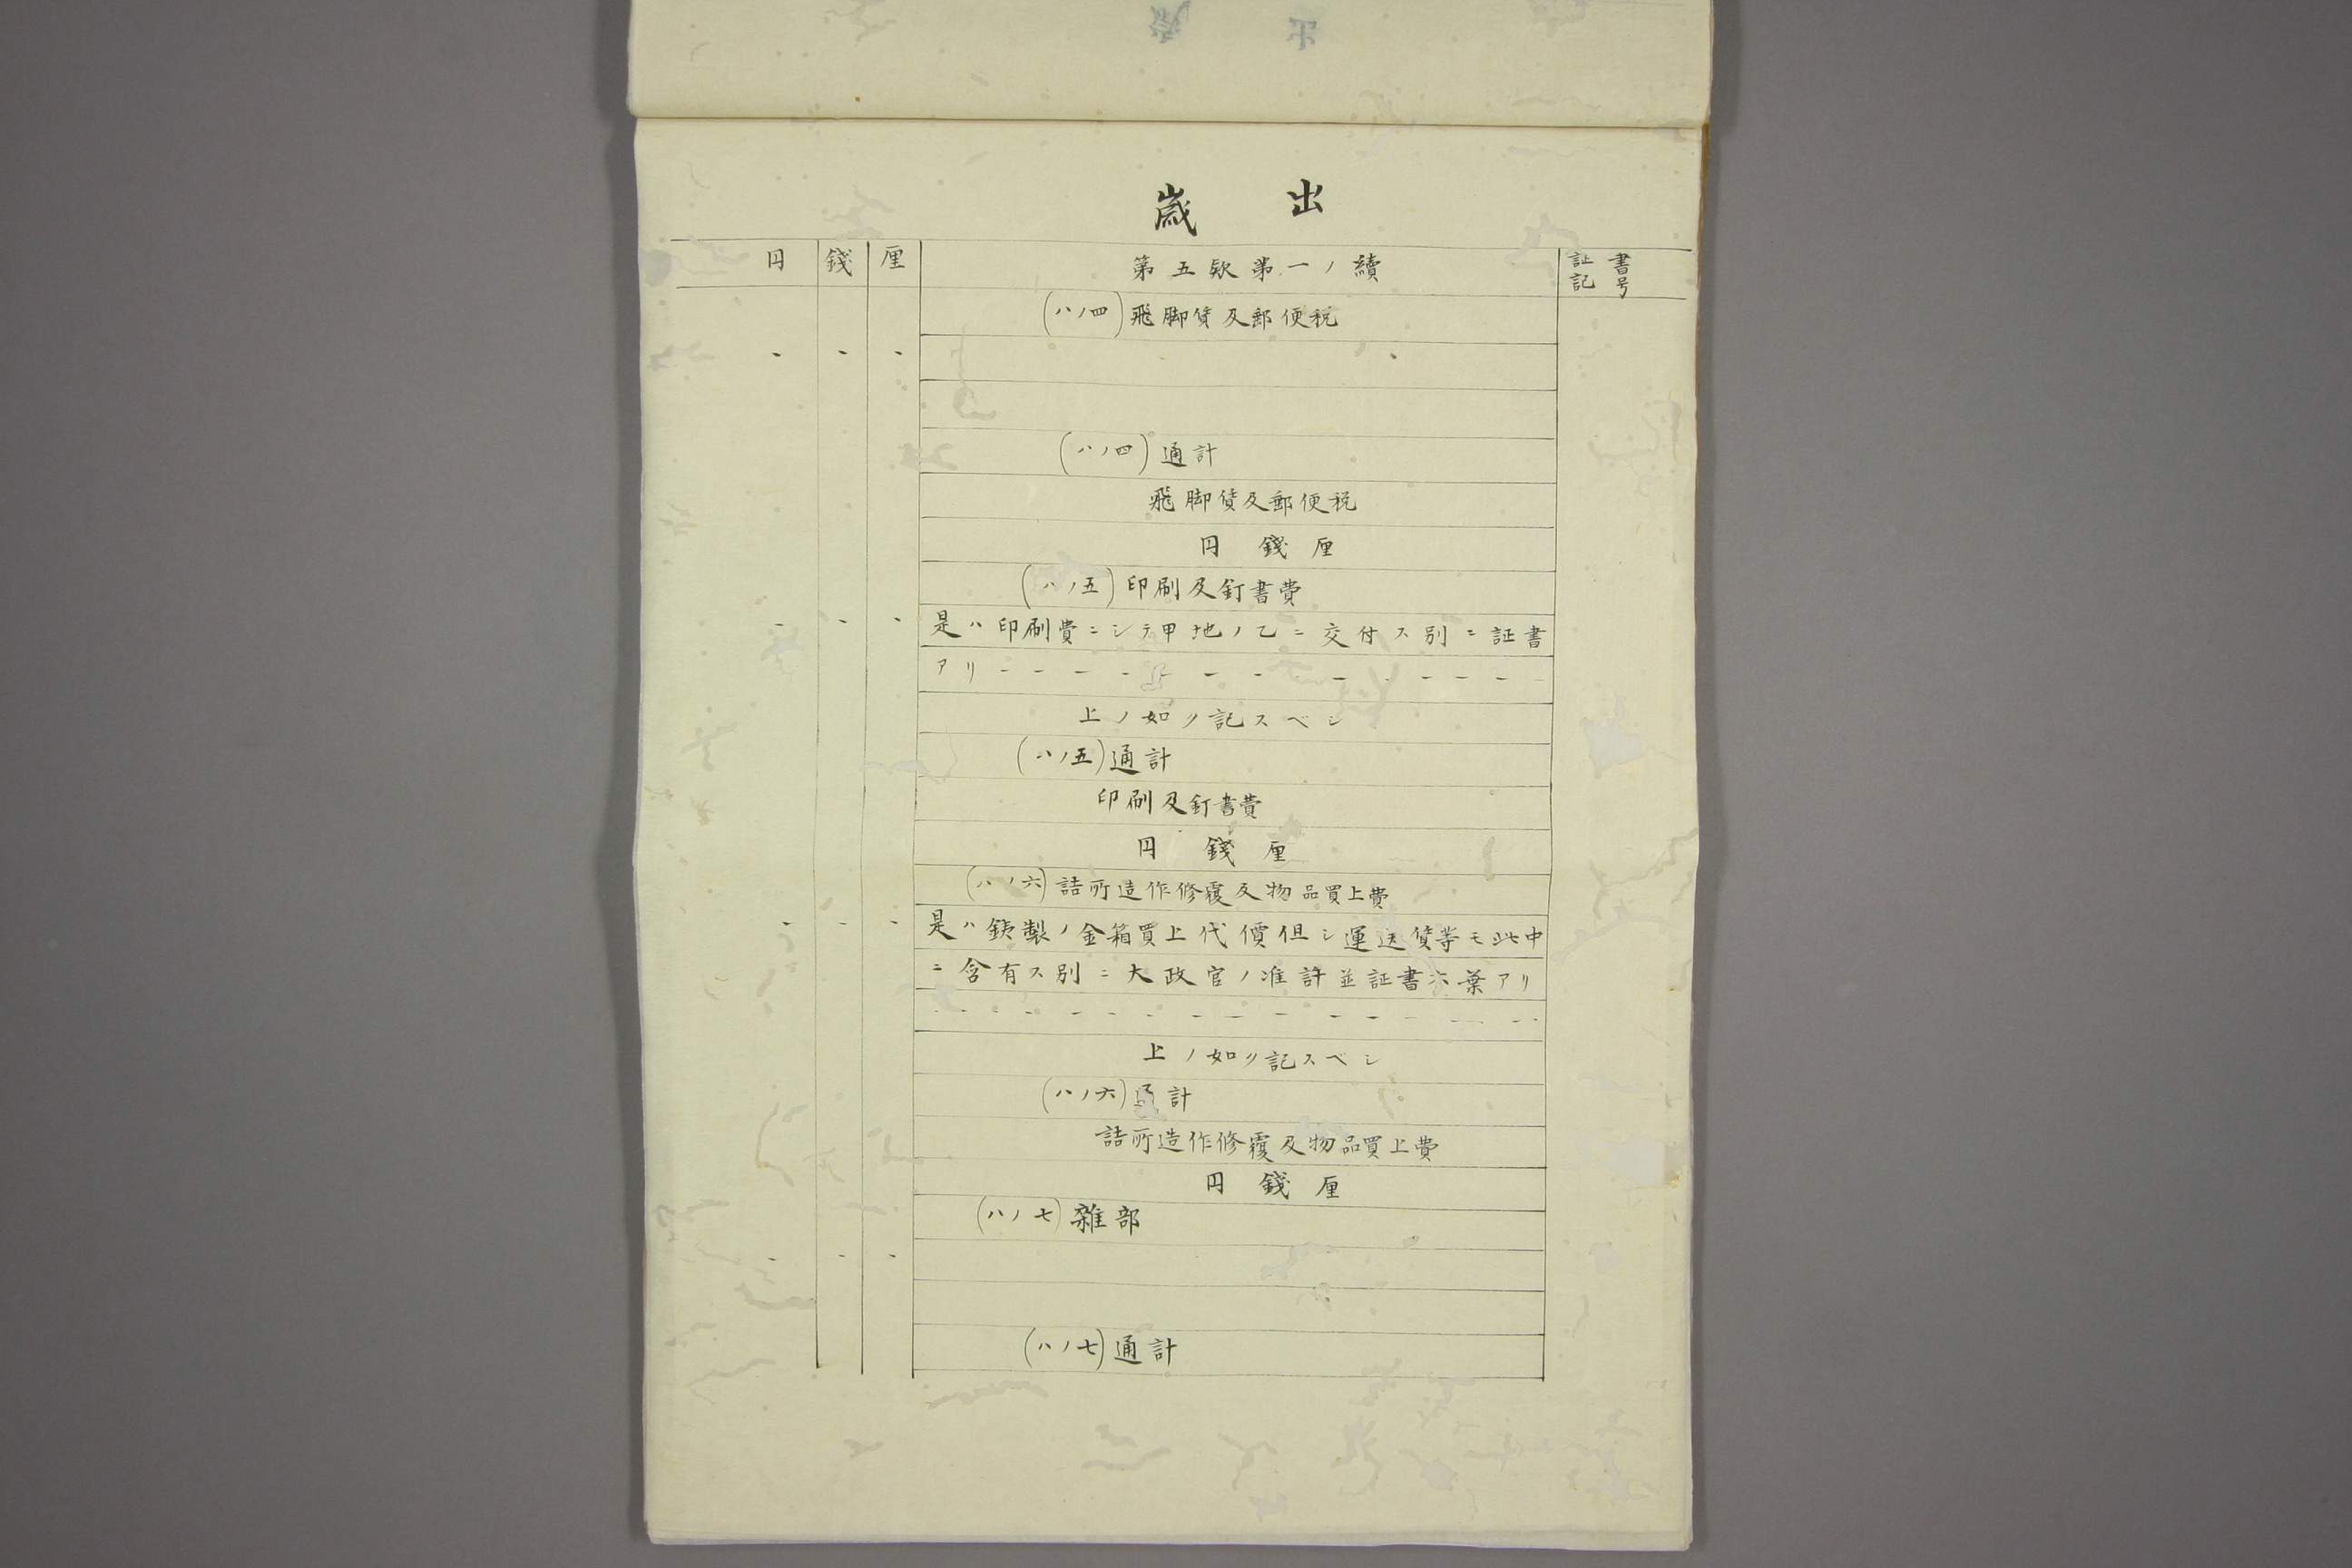 歳出
円 錢 厘 第五欵第一ノ續 証書記号
(ハノ四)飛脚賃及郵便税
(ハノ四)通計
飛脚賃及郵便税
円 錢 厘
(ハノ五)印刷及釘書費
是ハ印刷費ニシテ甲地ノ乙ニ交付ス別ニ証書
アリ
上ノ如ク記スベシ
(ハノ五)通計
印刷及釘書費
円 錢 厘
(ハノ六)詰所造作修覆及物品買上費
是ハ銕製ノ金箱買上代價但シ運送賃等モ此中
ニ含有ス別ニ大政官ノ准許並証書六葉アリ
上ノ如ク記スベシ
(ハノ六)通計
詰所造作修覆及物品買上費
円 錢 厘
(ハノ七)雜部
(ハノ七)通計